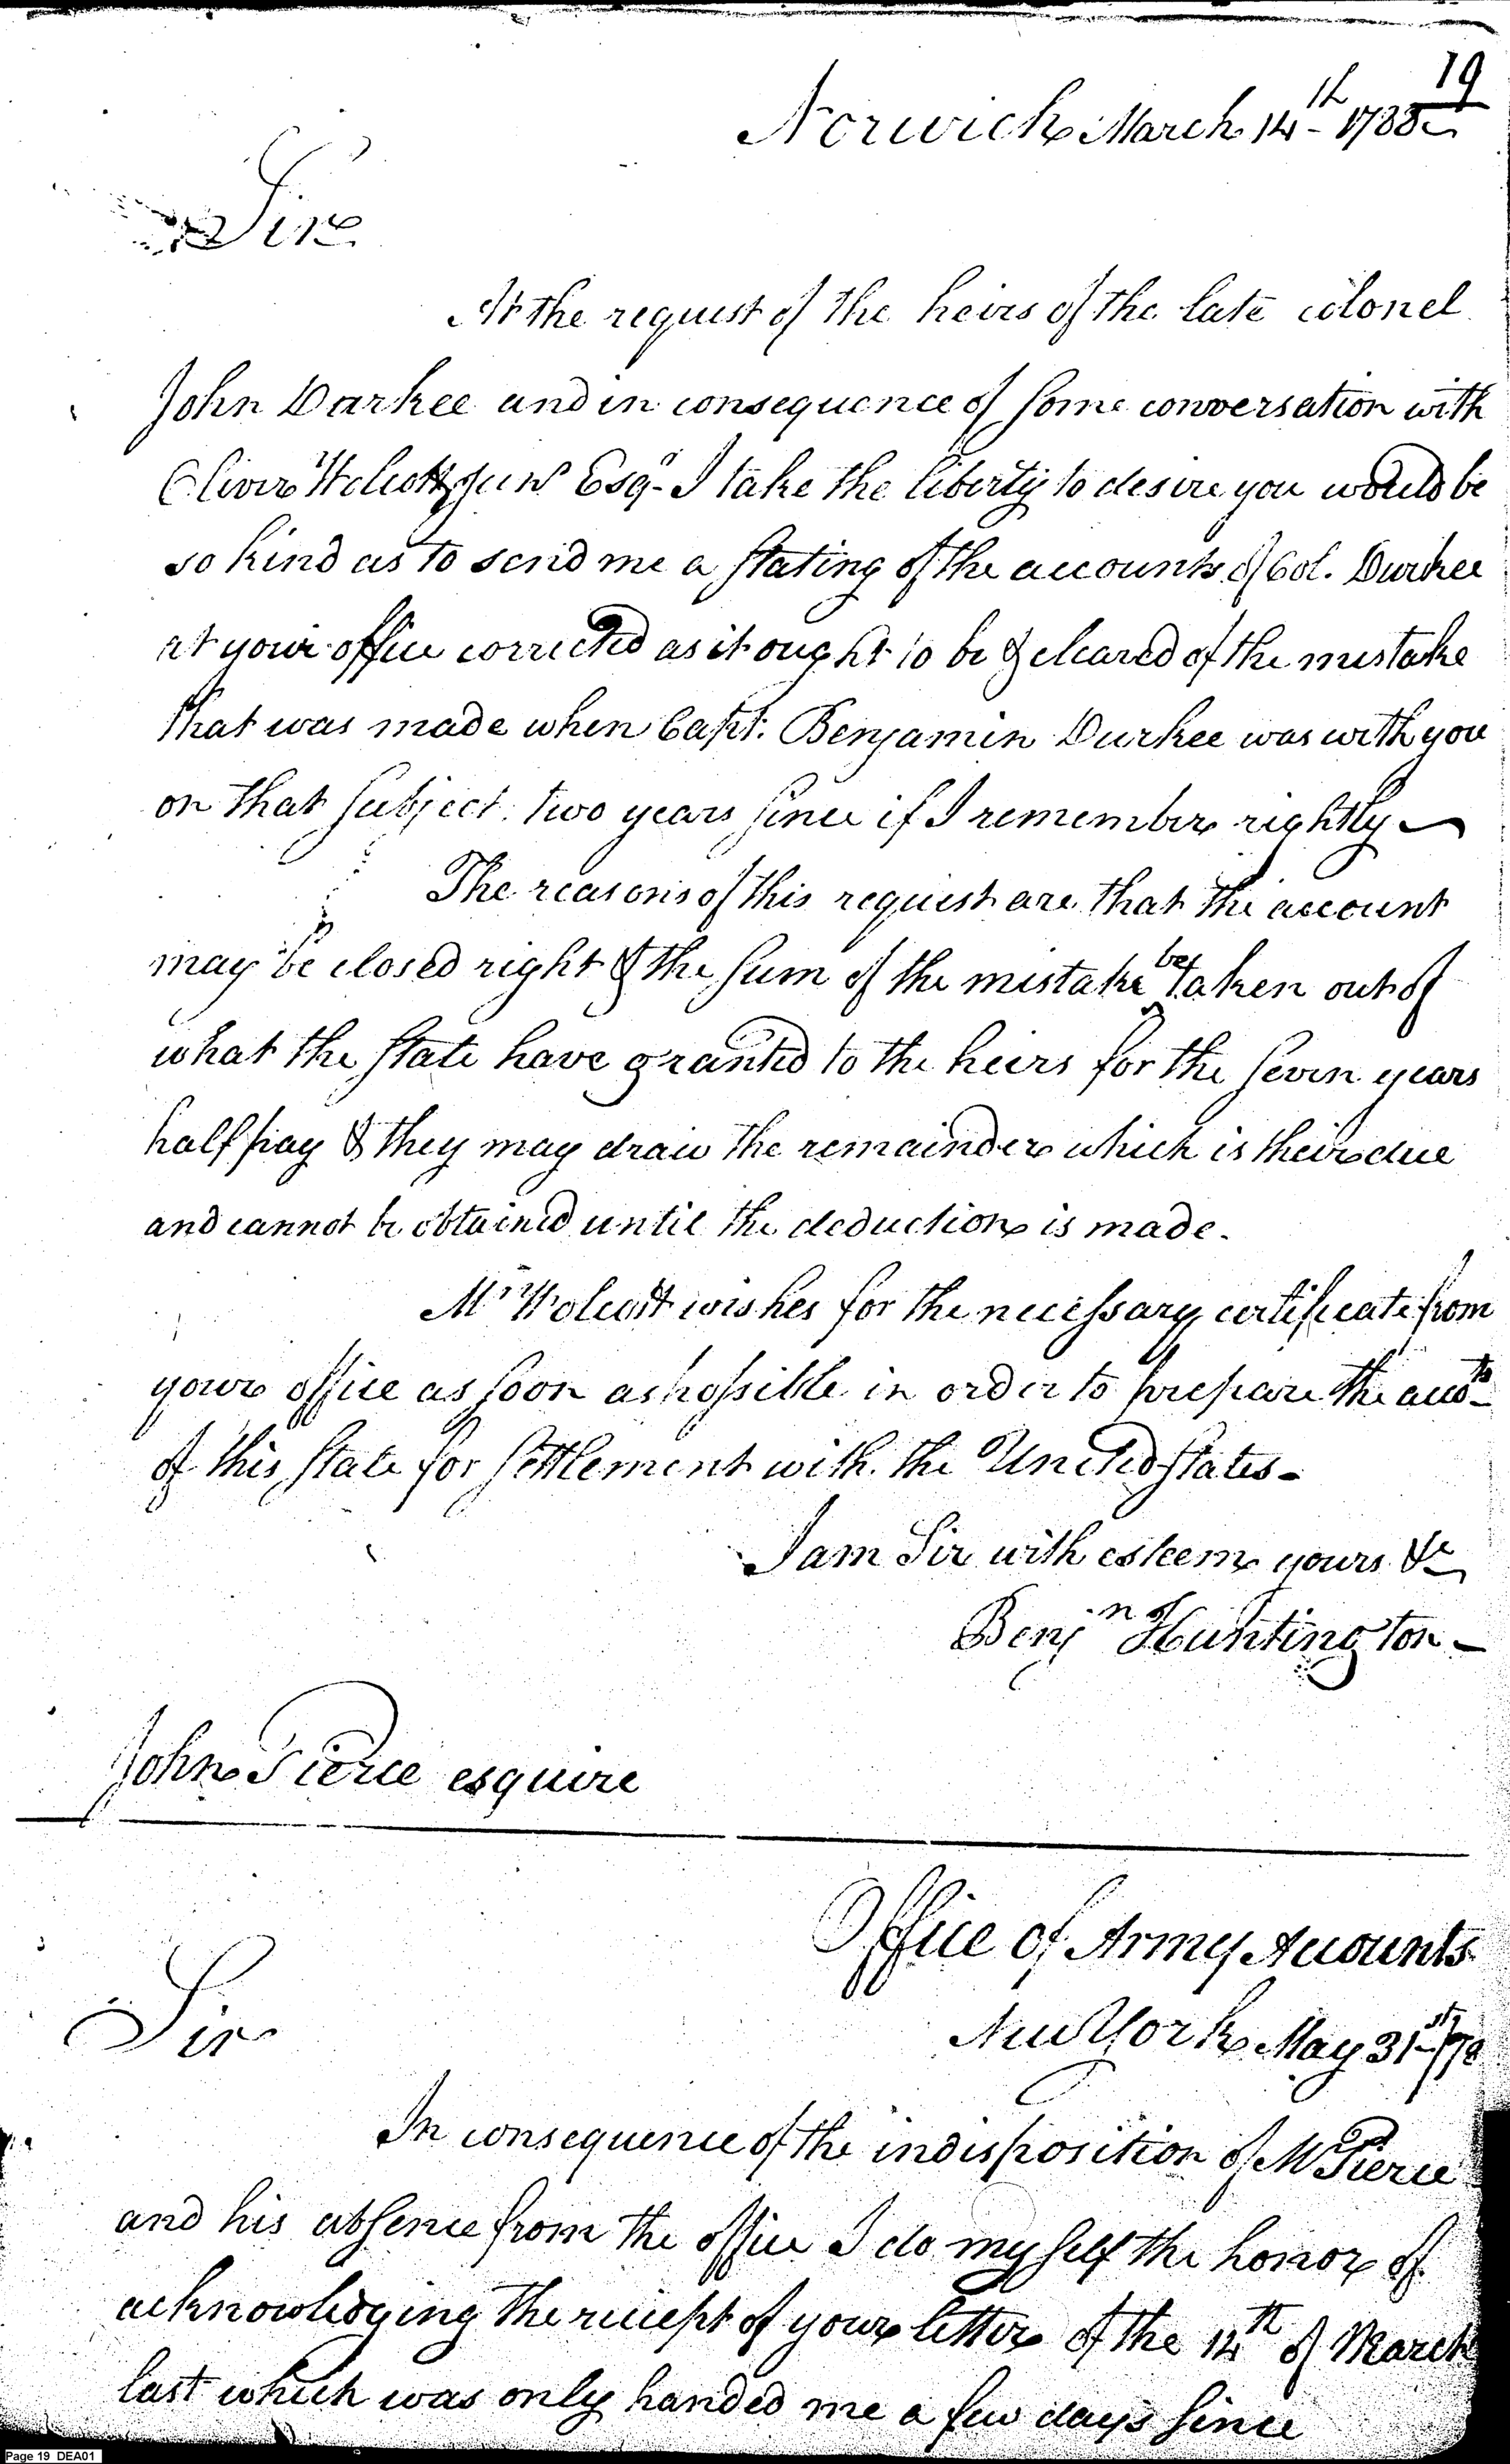 19
Norwich March 14th 1788
Sir
At the request of the heirs of the late colonel
John Durkee and in consequence of some conversation with
Oliver Wolcott junr Esqr I take the liberty to desire you would be
so kind as to send me a stating of the accounts of Col. Durkee
at your office corrected as it ought to be & cleared of the mistake
that was made when Capt. Benjamin Durkee was with you
on that subject two years since if I remember rightly
The reasons of this request are that the account
may be closed right & the sum of the mistake be taken out of
what the state have granted to the heirs for the seven years
half pay & they may draw the remainder which is their due
and cannot be obtained until the deduction is made.
Mr Wolcott wishes for the necessary certificate from
your office as soon as possible in order to prepare the accots
of this state for settlement with the United states-
I am Sir with esteem yours &c
Benjn Huntington-
John Pierce esquire
Office of Army Accounts
New York May 31st 178
Sir
In consequence of the indisposition of Mr Pierce
and his absence from the office I do myself the honor of
acknowledging the receipt of your letter of the 14th of March
last which was only handed me a few days since
Page 19 DEA01